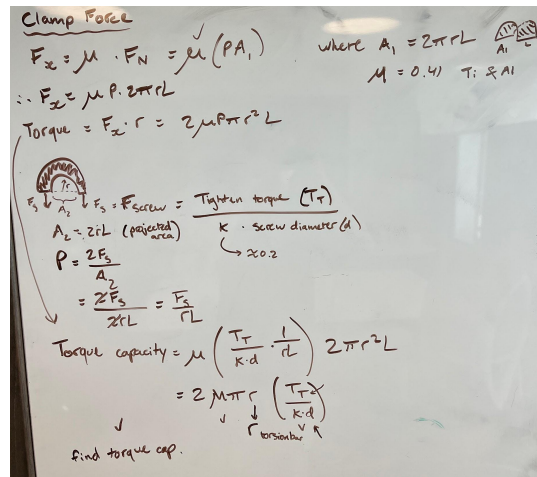 Clamp Force
Fₓ = μ · F_N = μ (PA₁) where A₁ = 2πrL
A₁ L
μ = 0.41 Ti & Al
∴ Fₓ = μ P · 2πrL
Torque = Fₓ · r = 2μPπr²L
r
Fₛ A₂ Fₛ = F_screw = Tighten torque (T_T) / K · screw diameter (d)
A₂ = 2rL (projected area)
→ ≈0.2
P = 2Fₛ / A₂
= 2Fₛ / 2rL = Fₛ / rL
Torque capacity = μ (T_T / K·d · 1 / rL) 2πr²L
= 2μπr (T_T / K·d)
r torsionbar
find torque cap.